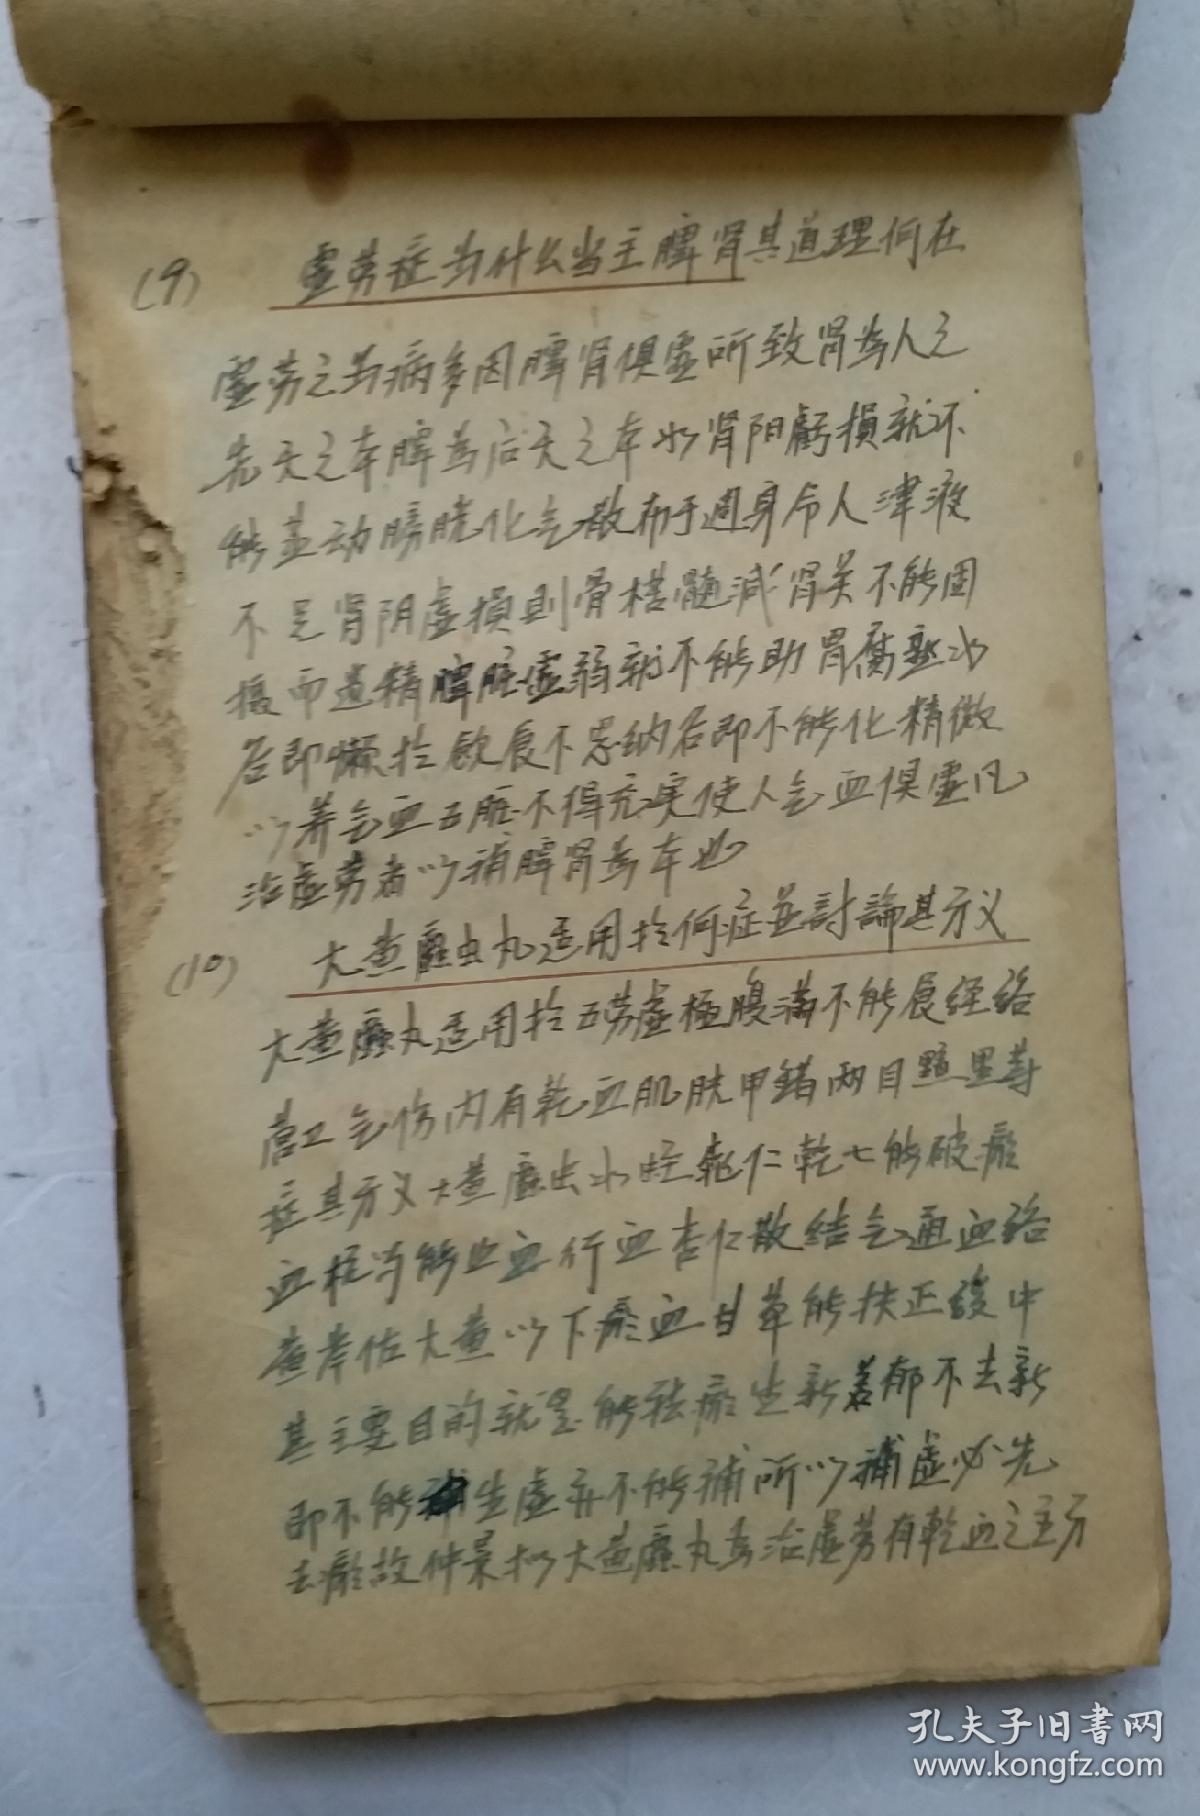 (9) 虚劳症为什么当主脾肾其道理何在
虚劳之为病多因脾肾俱虚所致肾为人之
先天之本脾为后天之本 肾阳虧損就不
能蒸动膀胱化气散布于週身令人津液
不足肾阴虚損則骨 髓減肾关不能固
摄而遗精脾脏虚弱就不能助胃腐熟水
谷即懒於飲食不思纳谷即不能化精微
以养气血五脏不得充实使人气血俱虚凡
治虚劳者以補脾肾为本也
(10) 大黄䗪虫丸适用於何症並討論其方义
大黄䗪丸适用於五劳虚極腹滿不能食经络
营卫气伤内有乾血肌肤甲錯两目黯黑等
症其方义大黄䗪虫水蛭 仁乾七能破瘀
血 能止血行血杏仁散结气通血络
黄芩佐大黄以下瘀血甘草能扶正缓中
其主要目的就是能祛瘀生新若郁不去新
即不能生虚亦不能補所以補虚必先
去瘀故仲景 大黄䗪丸为治虚劳有乾血之主方
孔夫子旧書网
www.kongfz.com